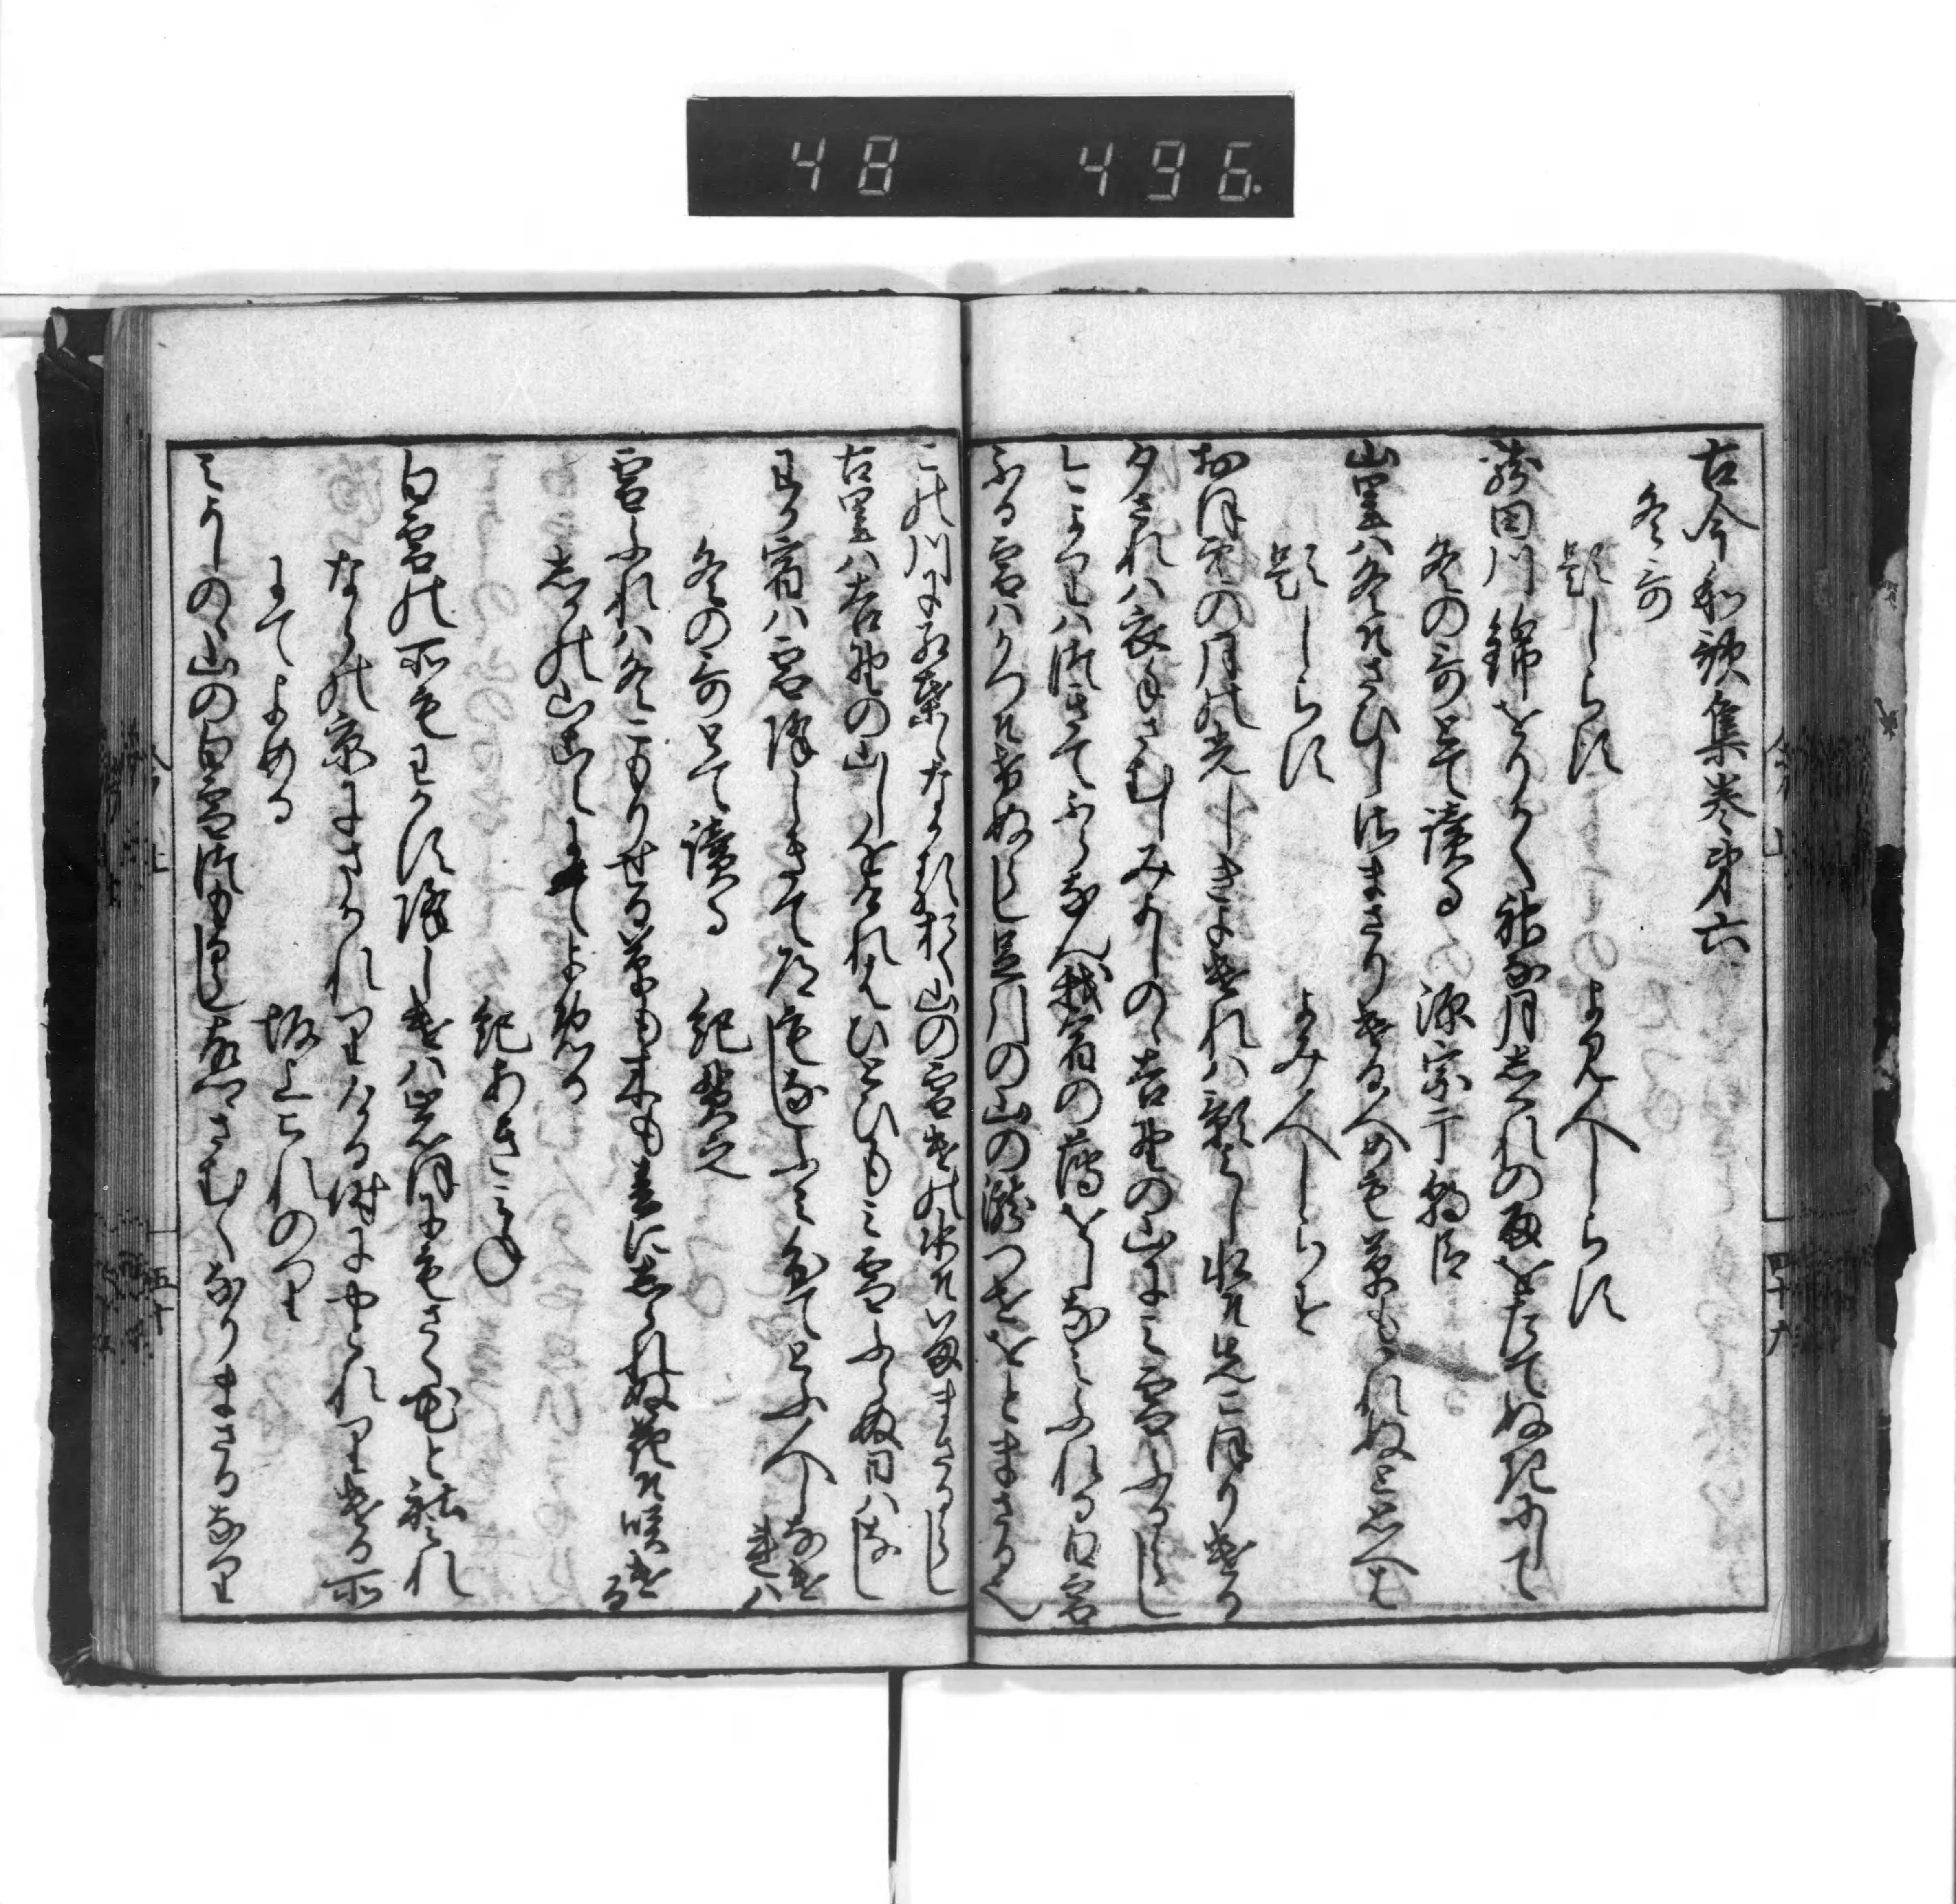 48 496.
古今和歌集巻第六
冬哥
題しらす
よみ人しらす
龍田川錦をりかく神な月しくれの雨をたてぬきにして
冬の哥とて読る
源宗于朝臣
山里は冬そさひしさまさりける人めも草もかれぬと思へは
題しらす
よみ人しらす
おほ空の月の光しきよけれは影見し水そ先こほりける
夕されは衣手さむしみよしのゝ吉野の山にみ雪ふるらし
今よりはつきてふらなん我宿の薄をしなみふれる白雪
ふる雪はかつそけぬらし足引の山の瀧つせをとまさるなり
この川に紅葉ゝなかるおく山の雪けの水そいまゝさるらし
古里は吉野の山し近けれはひとひもみ雪ふらぬ日はなし
わか宿は雪降しきて道もなしふみ分てとふ人しなけれは
冬の哥とて読る
紀貫之
雪ふれは冬こもりせる草も木も春にしられぬ花そ咲ける
しかの山こえにてよめる
紀あきみね
白雪の所もわかす降しけは岩ほにもさく花とこそみれ
ならの京にまかれりける時にやとれりける所
にてよめる
坂上これのり
みよしのゝ山の白雪つもるらし古里さむくなりまさるなり
四十九
五十